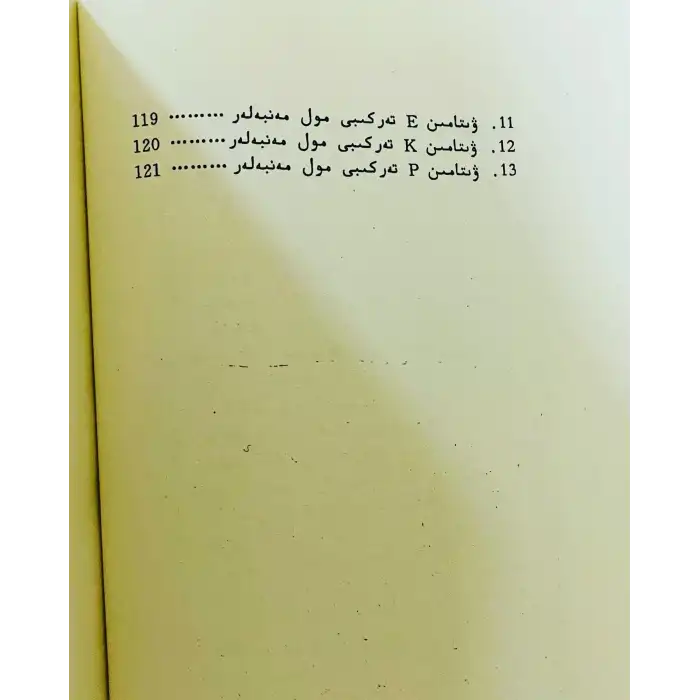 11. ۋىتامىن E تەركىبى مول مەنبەلەر ········· 119
12. ۋىتامىن K تەركىبى مول مەنبەلەر ········· 120
13. ۋىتامىن P تەركىبى مول مەنبەلەر ········· 121